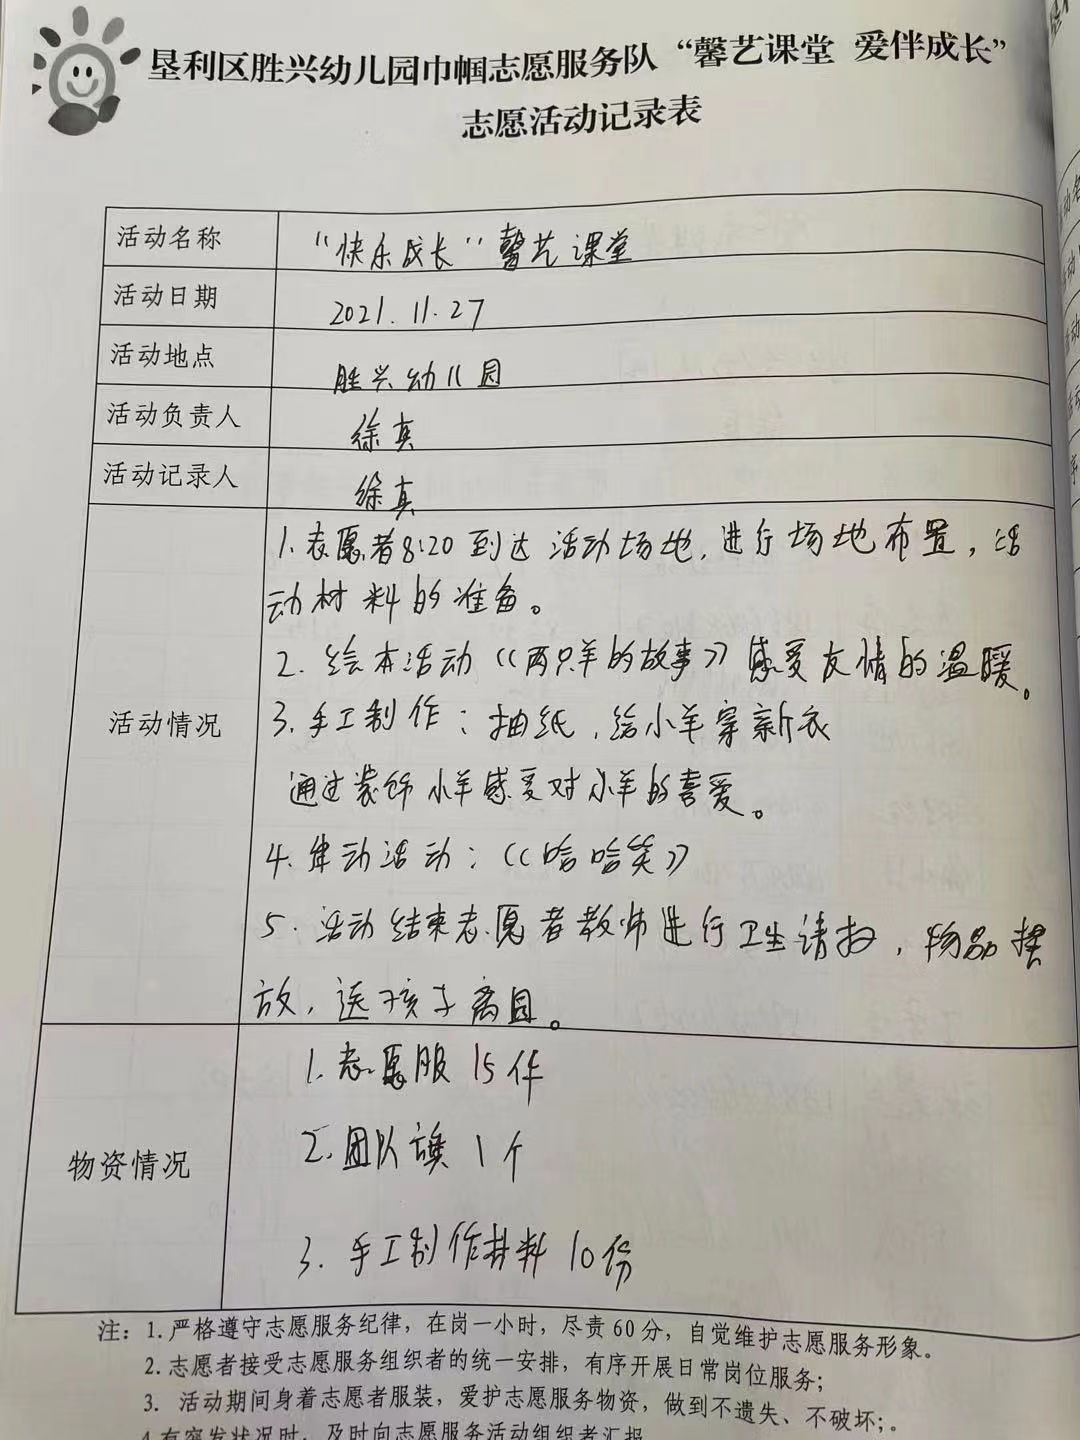 垦利区胜兴幼儿园巾帼志愿服务队“馨艺课堂 爱伴成长”
志愿活动记录表
活动名称 “快乐成长”馨艺课堂
活动日期 2021.11.27
活动地点 胜兴幼儿园
活动负责人 徐真
活动记录人 徐真
活动情况
1.志愿者8:20到达活动场地,进行场地布置,活
动材料的准备。
2.绘本活动《两只羊的故事》感受友情的温暖。
3.手工制作:抽纸,给小羊穿新衣
通过装饰小羊感受对小羊的喜爱。
4.律动活动:《哈哈笑》
5.活动结束志愿者教师进行卫生请扫,物品摆
放,送孩子离园。
物资情况
1.志愿服15件
2.团队旗1个
3.手工制作材料10份
注:1.严格遵守志愿服务纪律,在岗一小时,尽责60分,自觉维护志愿服务形象。
2.志愿者接受志愿服务组织者的统一安排,有序开展日常岗位服务;
3. 活动期间身着志愿者服装,爱护志愿服务物资,做到不遗失、不破坏;。
4.有突发状况时,及时向志愿服务活动组织者汇报